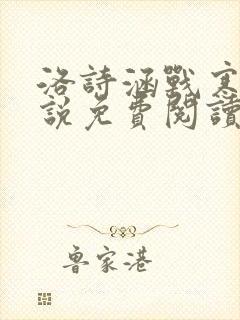 洛詩涵戰寒
說免費閱讀
魯家港